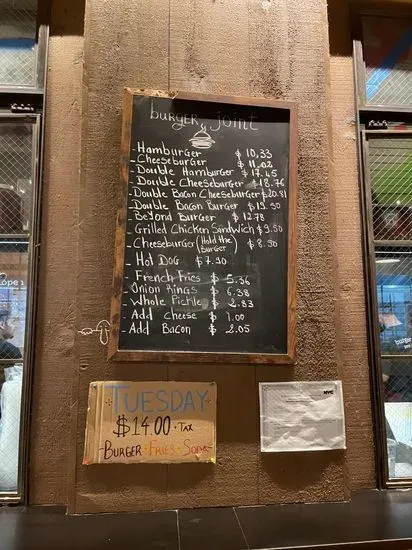 burger joint
- Hamburger $ 10,33
- Cheeseburger $ 11.02
- Double Hamburger $ 17.45
- Double Cheeseburger $ 18.76
- Double Bacon Cheeseburger $ 20.81
- Double Bacon Burger $ 19.50
- Beyond Burger $ 12.78
- Grilled Chicken Sandwich $ 9.50
- Cheeseburger (Hold the Burger) $ 8.50
- Hot Dog $ 7.90
- French Fries $ 5.36
- Onion Rings $ 6.38
- Whole Pickle $ 2.83
- Add Cheese $ 1.00
- Add Bacon $ 2.05
TUESDAY
$14.00 + TAX
- BURGER + FRIES + SODA
NYC